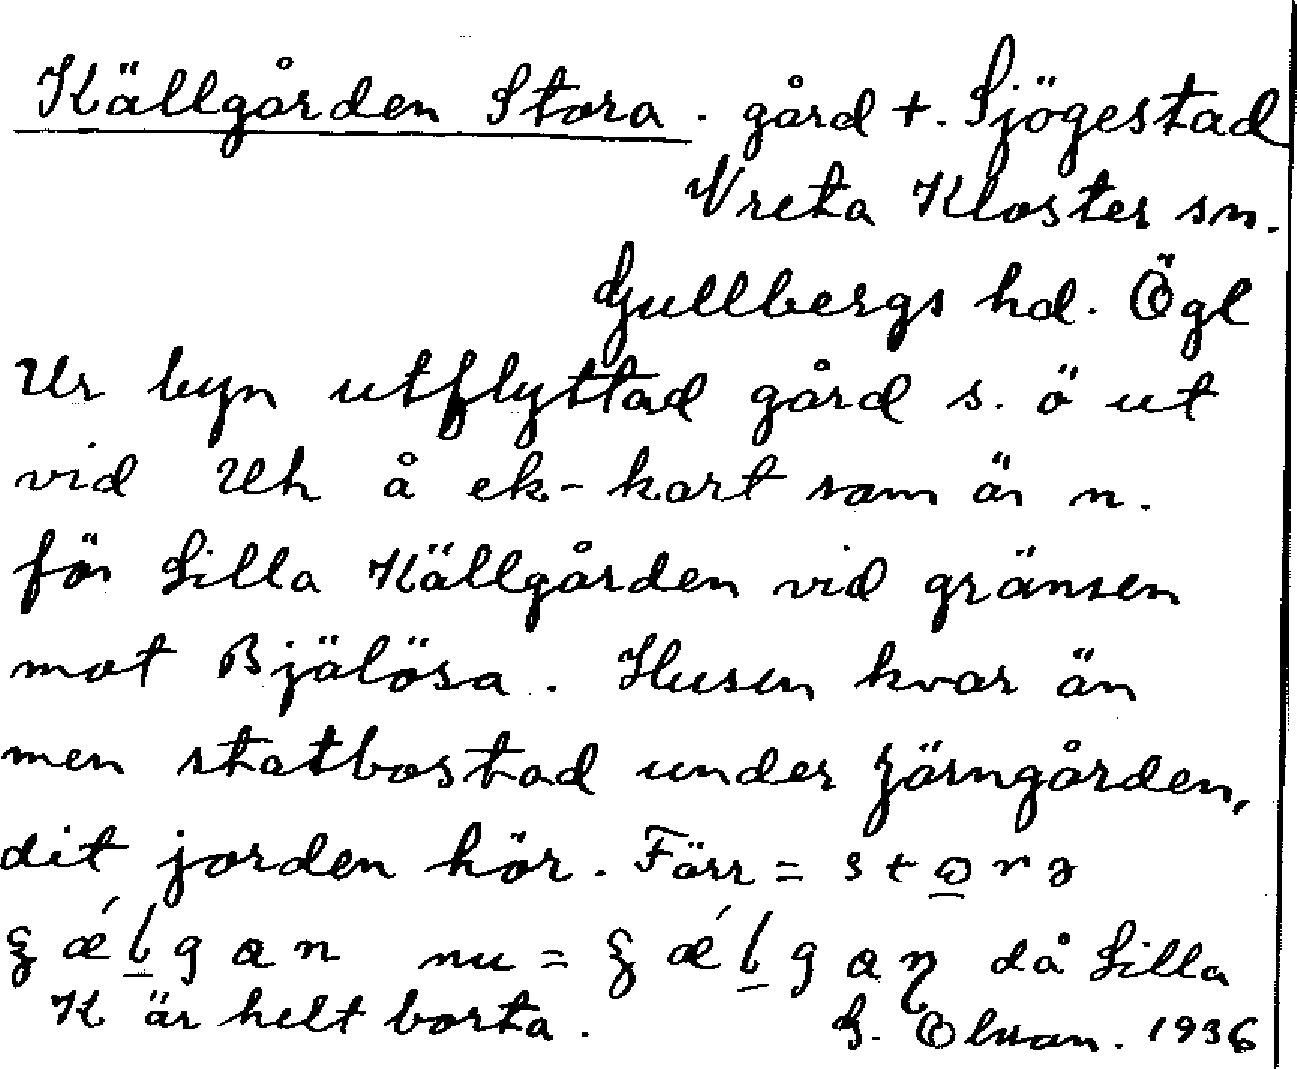 Källgården Stora . gård +. Sjögestad
Vreta Kloster sn.
Gullbergs hd. Ögl
Ur byn utflyttad gård s. ö ut
vid Uh å ek-kart som är n.
för Lilla Källgården vid gränsen
mot Bjälösa. Husen kvar än
men statbostad under Järngården,
dit jorden hör. Förr =
nu = då Lilla
K är helt borta. 1936